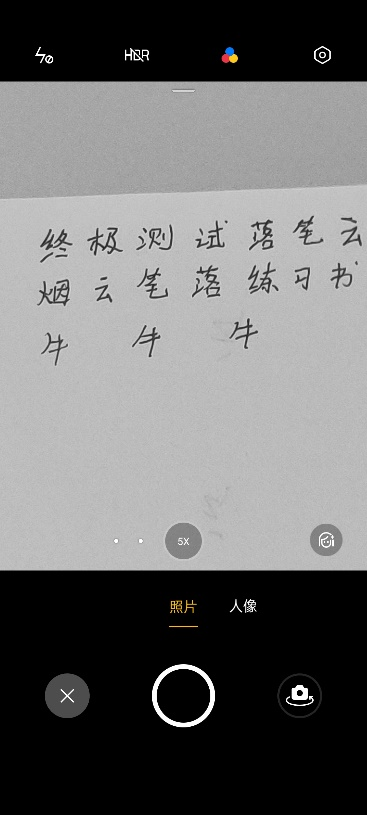 HDR
终极测试落笔云
烟云笔落练习书
牛 牛 牛
5X
照片 人像